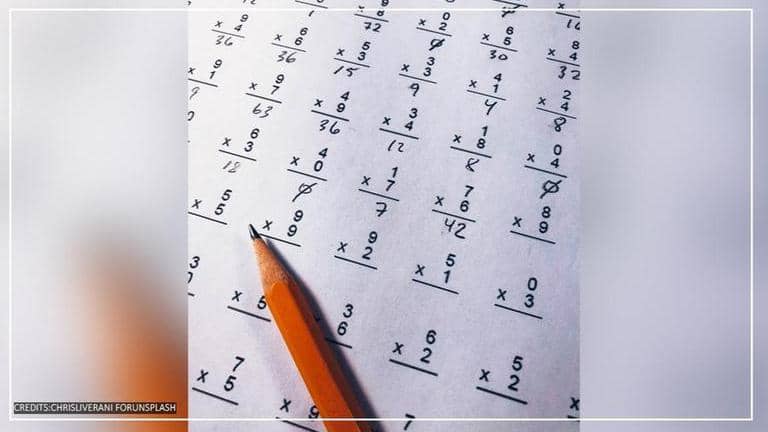 9 0 6 8
x 8 x 2 x 5 x 4
72 0 30 32
9 6 5 3 4 2
x 4 x 6 x 3 x 3 x 1 x 4
36 36 15 9 4 8
9 9 4 3 1 0
x 1 x 7 x 9 x 4 x 8 x 4
9 63 36 12 8 0
6 4 1 7 8
x 3 x 0 x 7 x 6 x 9
18 0 7 42
5 9 9 5 0
x 5 x 9 x 2 x 1 x 3
3 3 6 5
x 5 6 x 2 x 2
7 7
x 5 x 9 x
CREDITS:CHRISLIVERANI FORUNSPLASH